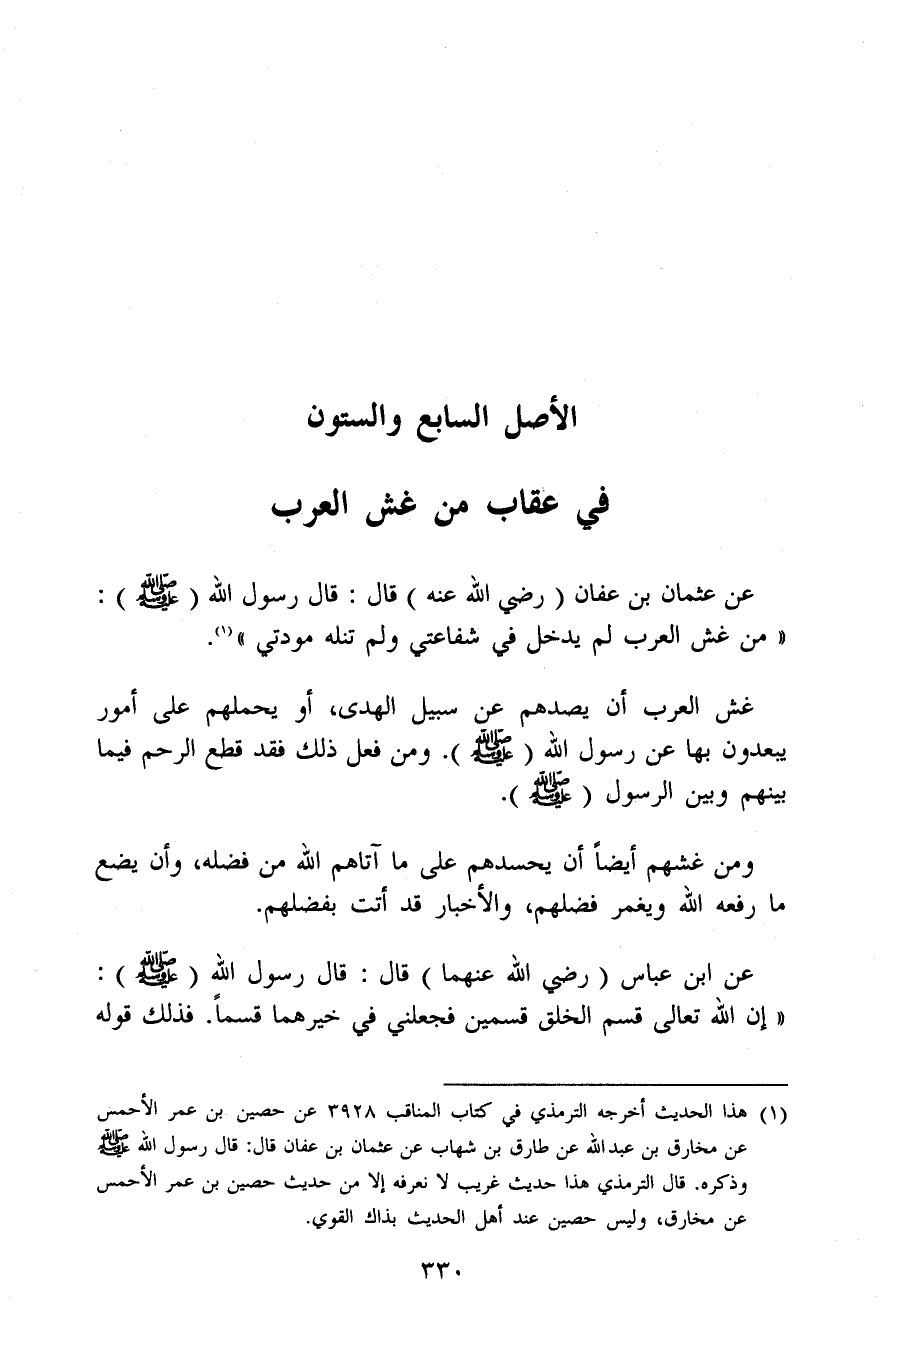 الأصل السابع والستون
في عقاب من غش العرب
عن عثمان بن عفان ( رضي الله عنه ) قال : قال رسول الله ( ﷺ ) :
« من غش العرب لم يدخل في شفاعتي ولم تنله مودتي »(١).
غش العرب أن يصدهم عن سبيل الهدى، أو يحملهم على أمور
يبعدون بها عن رسول الله ( ﷺ ). ومن فعل ذلك فقد قطع الرحم فيما
بينهم وبين الرسول ( ﷺ ).
ومن غشهم أيضاً أن يحسدهم على ما آتاهم الله من فضله، وأن يضع
ما رفعه الله ويغمر فضلهم، والأخبار قد أتت بفضلهم.
عن ابن عباس ( رضي الله عنهما ) قال : قال رسول الله ( ﷺ ) :
« إن الله تعالى قسم الخلق قسمين فجعلني في خيرهما قسماً. فذلك قوله
(١) هذا الحديث أخرجه الترمذي في كتاب المناقب ٣٩٢٨ عن حصين بن عمر الأحمس
عن مخارق بن عبدالله عن طارق بن شهاب عن عثمان بن عفان قال: قال رسول الله ﷺ
وذكره. قال الترمذي هذا حديث غريب لا نعرفه إلا من حديث حصين بن عمر الأحمس
عن مخارق، وليس حصين عند أهل الحديث بذاك القوي.
٣٣٠